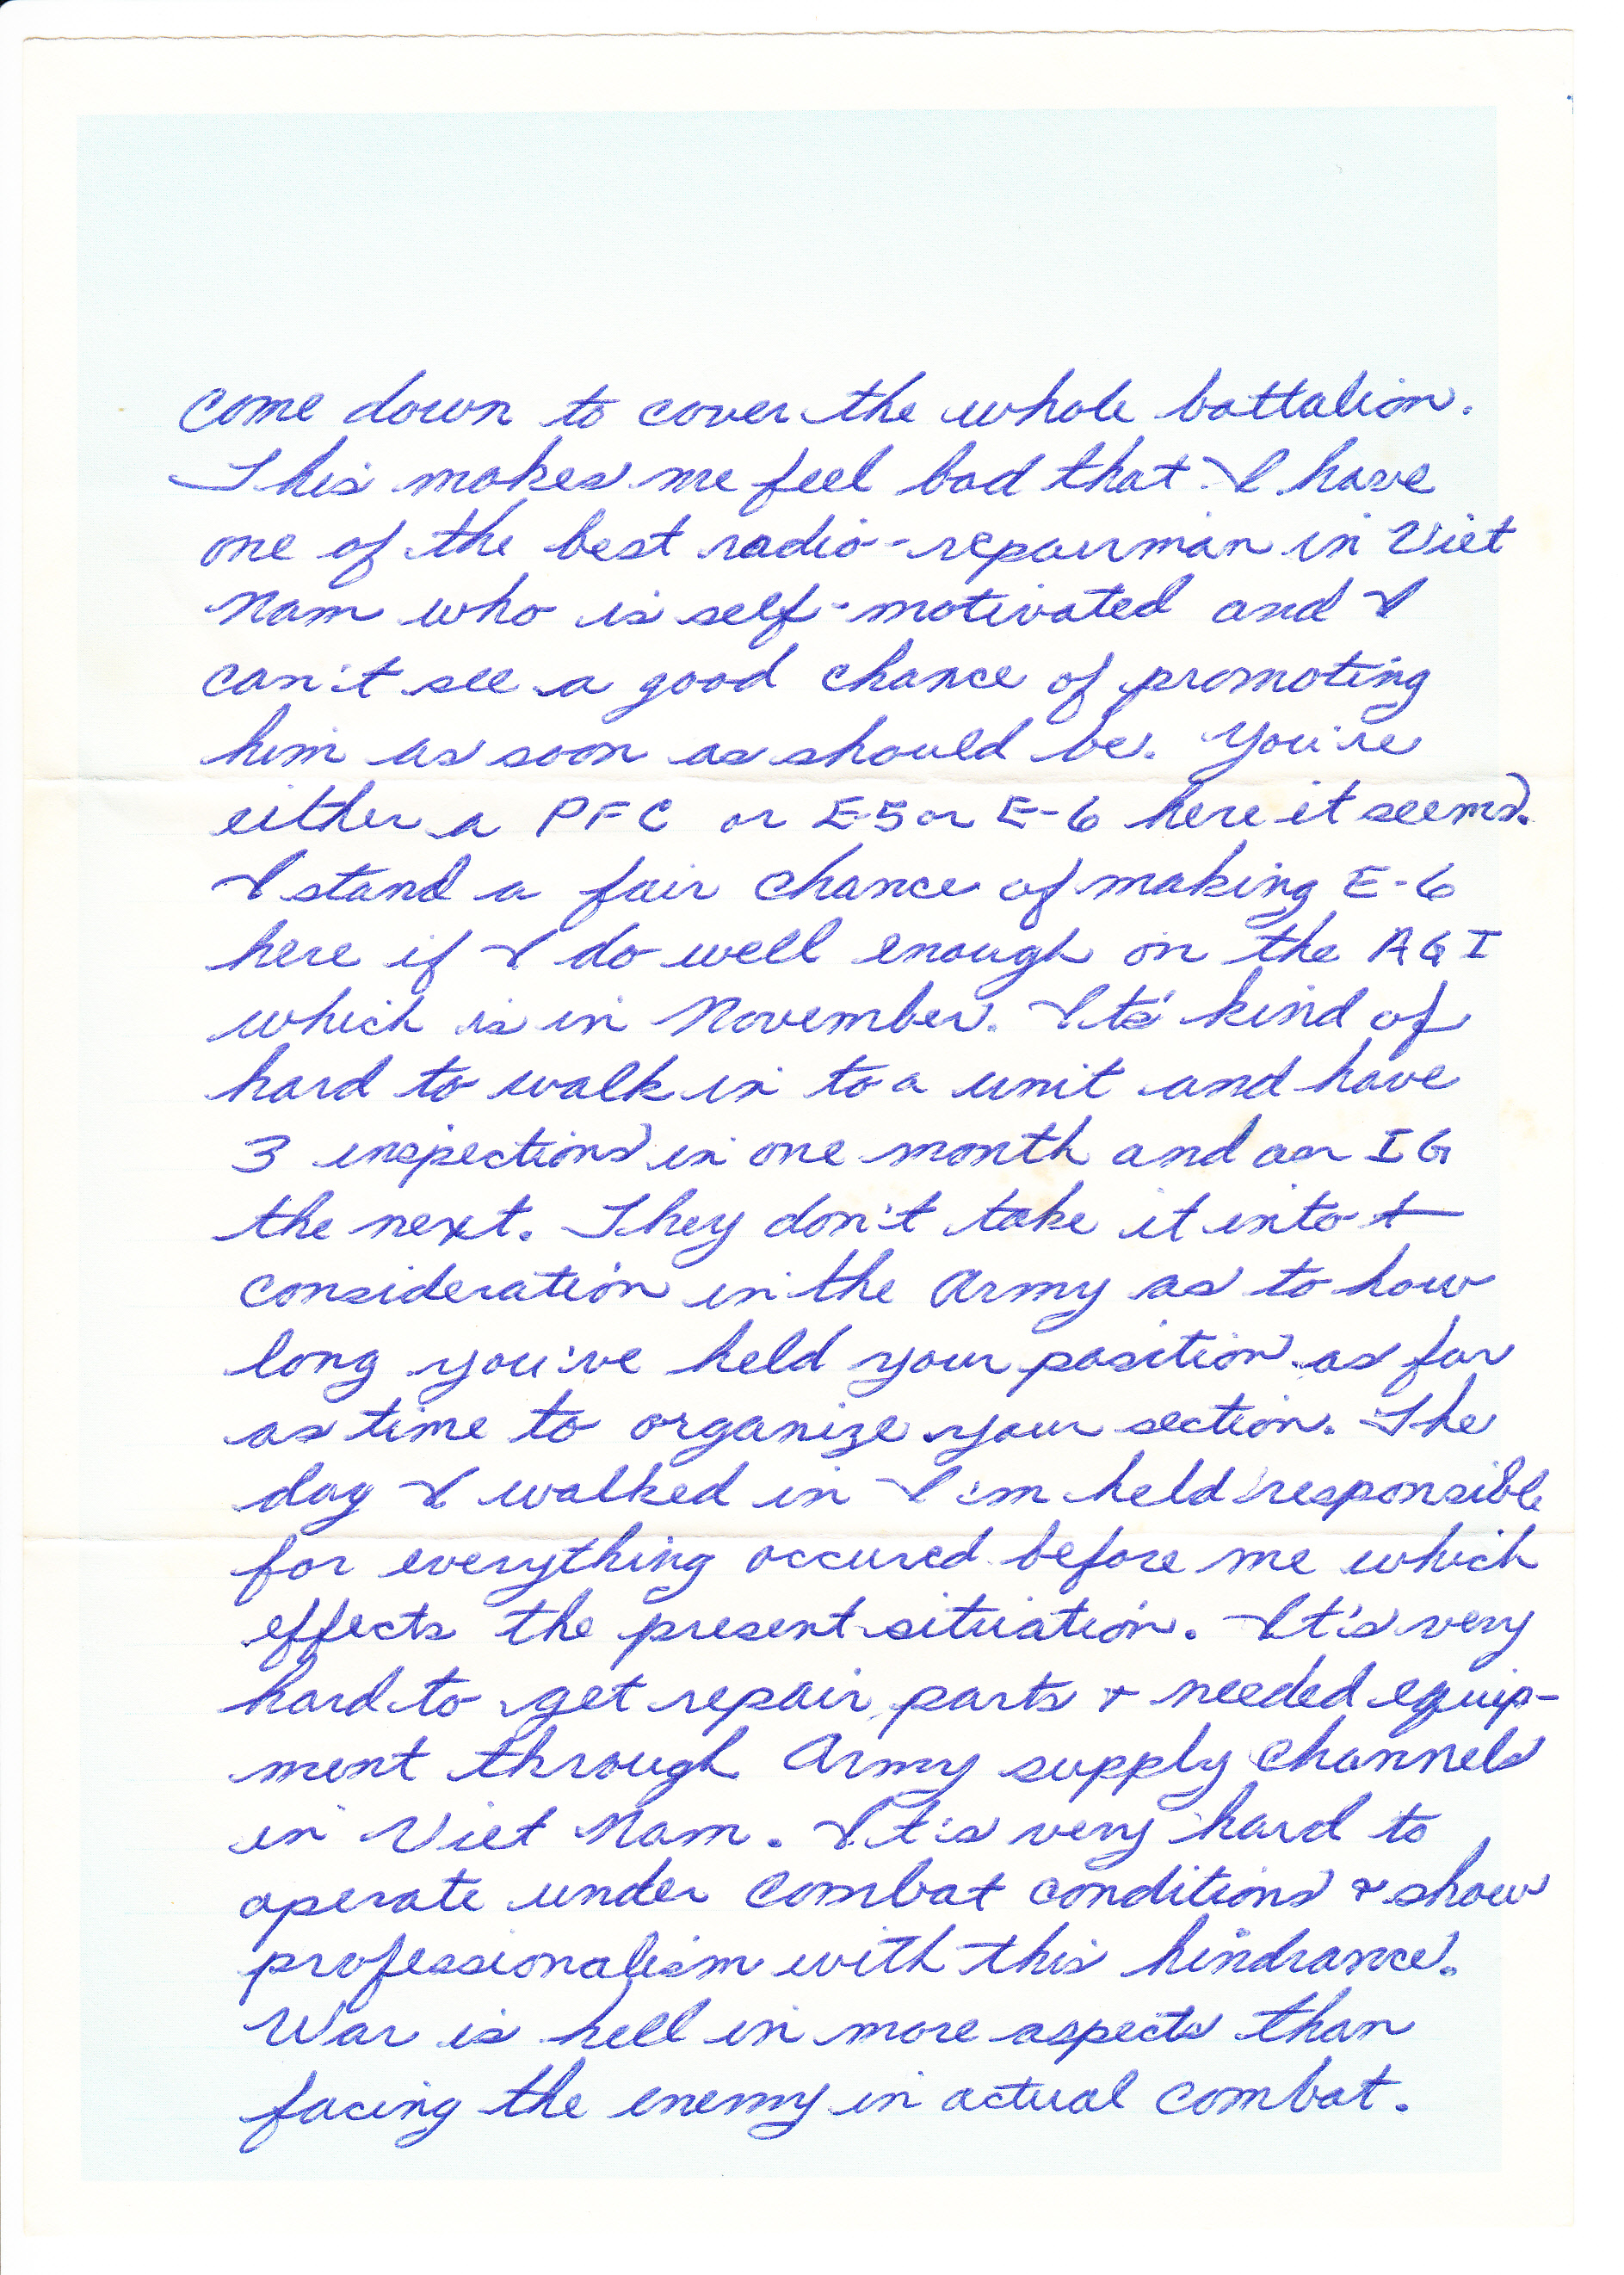 come down to cover the whole battalion.
This makes me feel bad that I have
one of the best radio-repairman in Viet
Nam who is self-motivated and I
can't see a good chance of promoting
him as soon as should be. You're
either a PFC or E-5 or E-6 here it seems.
I stand a fair chance of making E-6
here if I do well enough on the AGI
which is in November. Its' kind of
hard to walk in to a unit and have
3 inspections in one month and an IG
the next. They don't take it into t
consideration in the Army as to how
long you've held your position as far
as time to organize your section. The
day I walked in I'm held responsible
for everything occured before me which
effects the present situation. It's very
hard to get repair parts + needed equip-
ment through Army supply channels
in Viet Nam. It's very hard to
operate under combat conditions + show
professionalism with this hindrance.
War is hell in more aspects than
facing the enemy in actual combat.